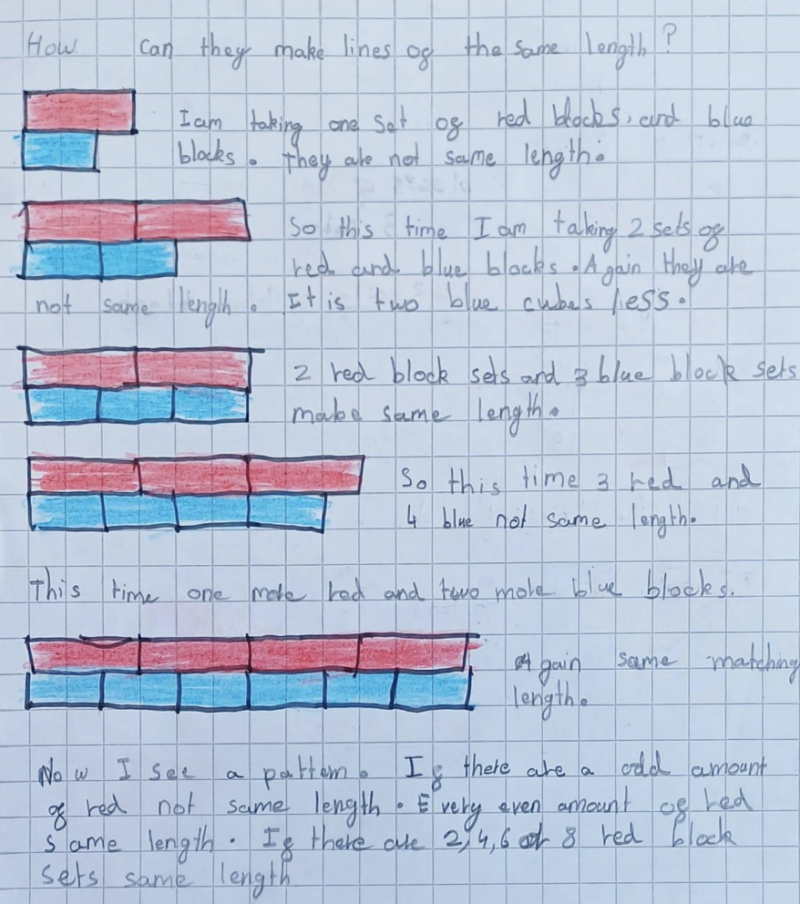 How can they make lines of the same length?
I am taking one set of red blocks, and blue
blocks. They are not same length.
So this time I am taking 2 sets of
red and blue blocks. Again they are
not same length. It is two blue cubes less.
2 red block sets and 3 blue block sets
make same length.
So this time 3 red and
4 blue not same length.
This time one more red and two more blue blocks.
Again same matching
length.
Now I see a pattern. If there are a odd amount
of red not same length. Every even amount of red
same length. If there are 2,4,6 or 8 red block
sets same length